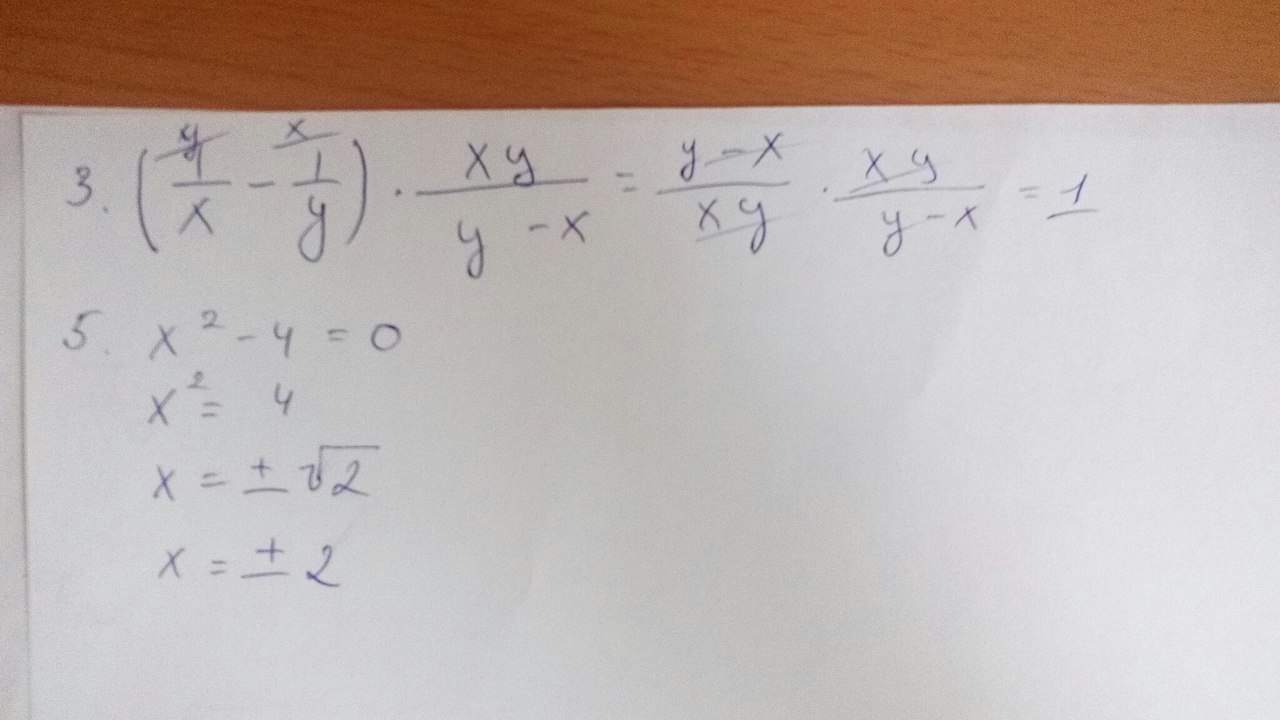 3. (y/ 1/x - x/ 1/y) · xy/(y - x) = (y - x)/(xy) · xy/(y - x) = 1
5. x² - 4 = 0
x² = 4
x = ± √2
x = ± 2